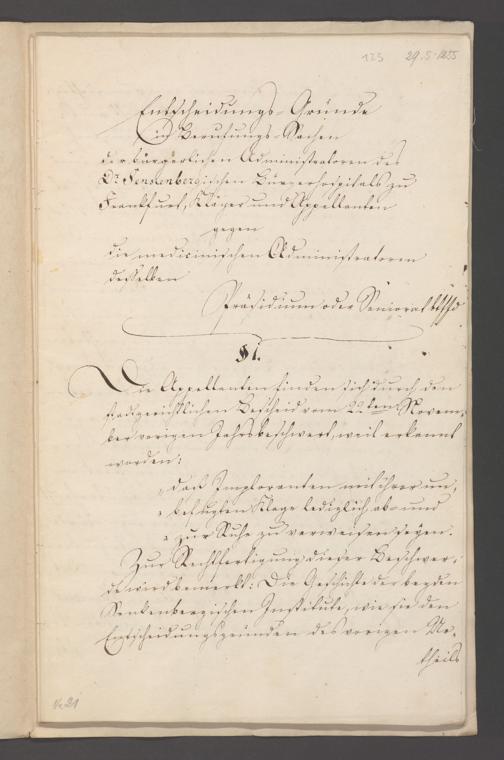 123 29.5.1855
Entscheidungs-Gründe
in Berufungs-Sachen
der bürgerlichen Administratoren des
Dr. Senkenbergischen Bürgerhospitals zu
Frankfurt, Kläger und Appellanten
gegen
die medicinischen Administratoren
desselben
Präsidium oder Seniorat betfd
§1.
Die Appellanten finden sich durch den
stadtgerichtlichen Bescheid vom 22ten Novem-
ber vorigen Jahrs beschwert, weil erkannt
worden:
„daß Imploranten mit ihrer un-
„befugten Klage lediglich ab- und
„zur Ruhe zu verweisen seyen.
Zur Rechtfertigung dieser Beschwer-
de wird bemerkt: Die Geschichte der beyden
Senkenbergischen Institute, wie sie den
Entscheidungsgründen des vorigen Ur-
theils